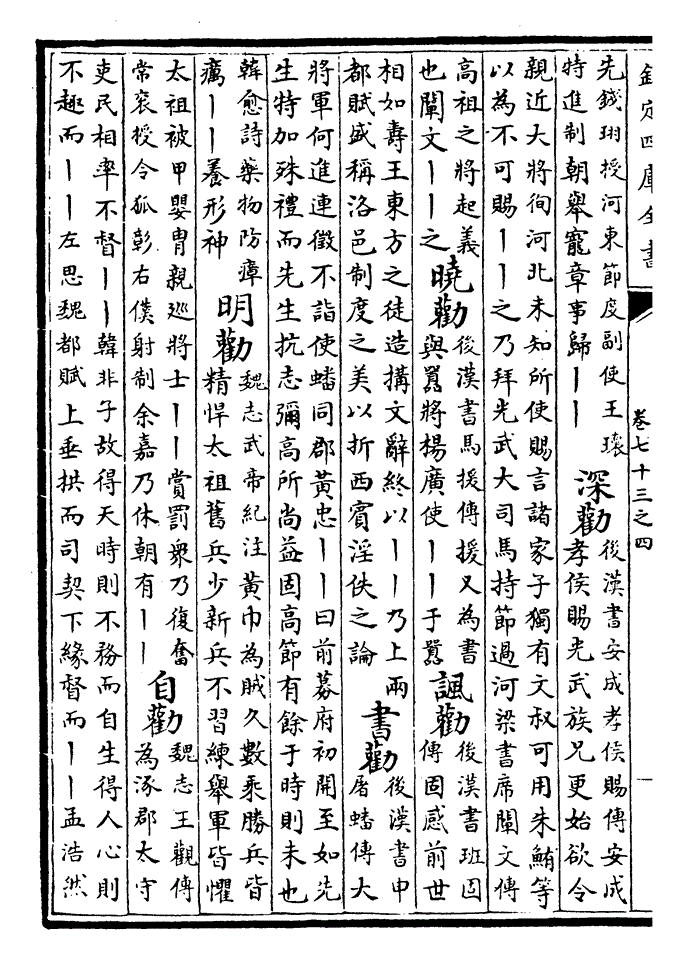 欽定四庫全書
卷七十三之四
一
先錢珝授河東節度副使王瓌
特進制朝舉寵章事歸丨丨
深勸
後漢書安成孝侯賜傳安成
孝侯賜光武族兄更始欲令
親近大將徇河北未知所使賜言諸家子獨有文叔可用朱鮪等
以為不可賜丨丨之乃拜光武大司馬持節過河梁書席闡文傳
高祖之將起義
也闡文丨丨之
曉勸
後漢書馬援傳援又為書
與囂將楊廣使丨丨于囂
諷勸
後漢書班固
傳固感前世
相如壽王東方之徒造搆文辭終以丨丨乃上兩
都賦盛稱洛邑制度之美以折西賓淫佚之論
書勸
後漢書申
屠蟠傳大
將軍何進連徵不詣使蟠同郡黃忠丨丨曰前募府初開至如先
生特加殊禮而先生抗志彌高所尚益固高節有餘于時則未也
韓愈詩藥物防瘴
癘丨丨養形神
明勸
魏志武帝紀注黃巾為賊久數乘勝兵皆
精悍太祖舊兵少新兵不習練舉軍皆懼
太祖被甲嬰冑親巡將士丨丨賞罰眾乃復奮
常袞授令狐彰右僕射制余嘉乃休朝有丨丨
自勸
魏志王觀傳
為涿郡太守
吏民相率不督丨丨韓非子故得天時則不務而自生得人心則
不趣而丨丨左思魏都賦上垂拱而司契下緣督而丨丨孟浩然